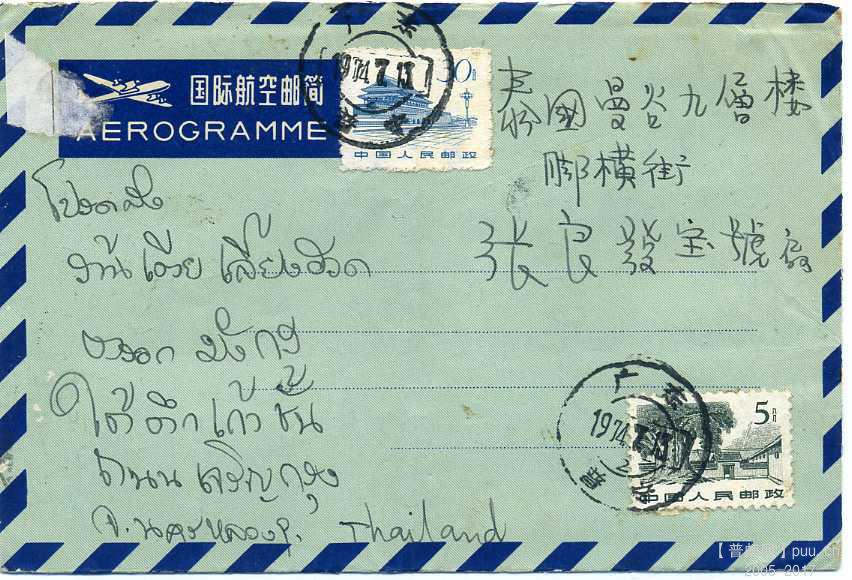 国际航空邮简
AEROGRAMME
广东
1974.7.13
30分
中国人民邮政
泰國曼谷九層樓
脚橫街
张良發宝號啟
โปรดส่ง
ร้าน เตียง
ตรอก มังกร
ใต้ตึกเก้าชั้น
ถนน เจริญกรุง
จ. นครหลวงฯ. Thailand
广东
1974.7.13
5分
中国人民邮政
puu.cn
2005-2017